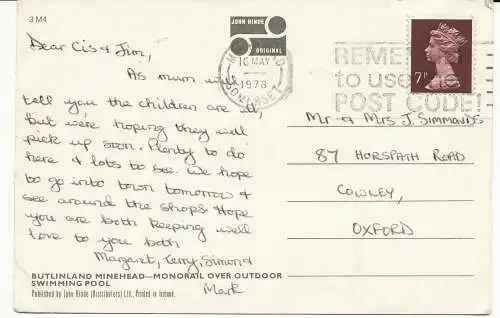 3 M4
JOHN HINDE
ORIGINAL
Dear Cis & Jim,
As mum will
tell you the children are ill,
but we're hoping they will
pick up soon. Plenty to do
here & lots to see. We hope
to go into town tomorrow &
see around the shops. Hope
you are both keeping well
love to you both
Margaret, Terry, Simon &
Mark
BUTLINLAND MINEHEAD—MONORAIL OVER OUTDOOR
SWIMMING POOL
Published by John Hinde (Distributors) Ltd., Printed in Ireland.
16 MAY
1978
SOMERSET
REME
to use
POST CODE
7P
Mr & Mrs J. Simmonds
87 HORSPATH ROAD
COWLEY,
OXFORD